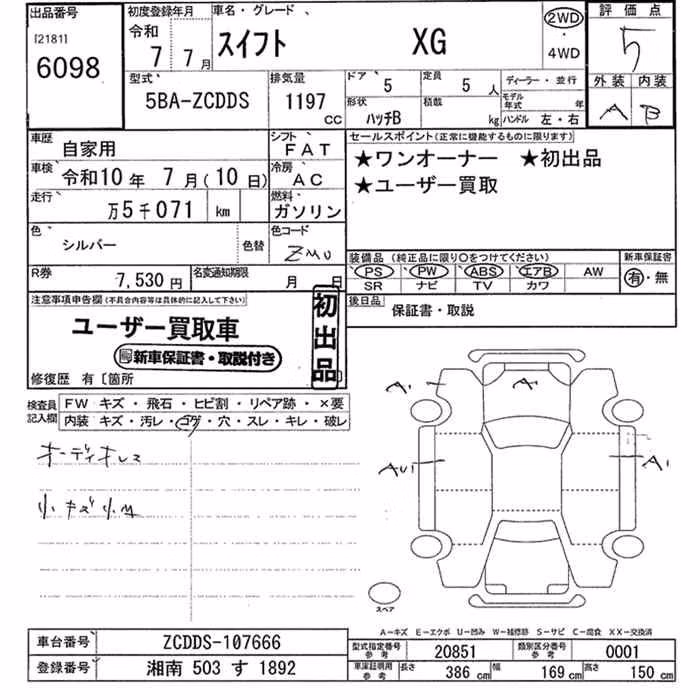 出品番号 初度登録年月 車名・グレード 評価点
[2181] 令和 スイフト XG 2WD ・ 4WD 5
6098 7 7月
型式 排気量 ドア 5 定員 5人 ディーラー・並行 外装 内装
5BA-ZCDDS 1197 cc 形状 ハッチB 積載 kg モデル年式 年 A B
ハンドル 左・右
車歴 自家用 シフト FAT セールスポイント(正常に機能するものに限ります)
車検 令和10年 7月(10日) 冷房 AC ★ワンオーナー ★初出品
走行 万5千071 km 燃料 ガソリン ★ユーザー買取
色 シルバー 色替 色コード ZMU
装備品(純正品に限り○をつけてください) 新車保証書
R券 7,530円 名変通知期限 月 日 PS PW ABS エアB AW 有・無
SR ナビ TV カワ
注意事項申告欄(不具合内容等は具体的に記入して下さい) 初出品 後日品 保証書・取説
ユーザー買取車
新車保証書・取説付き
修復歴 有〔箇所
検査員記入欄 FW キズ・飛石・ヒビ割・リペア跡・×要
内装 キズ・汚レ・コゲ・穴・スレ・キレ・破レ
オーディオレス
小キズ小凹
A1 A
AU1 A1
スペア
A-キズ E-エクボ U-凹み W-補修跡 S-サビ C-腐食 XX-交換済
車台番号 ZCDDS-107666 型式指定番号 参考 20851 類別区分番号 参考 0001
登録番号 湘南 503 す 1892 車庫証明用 参考 長さ 386 cm 幅 169 cm 高さ 150 cm